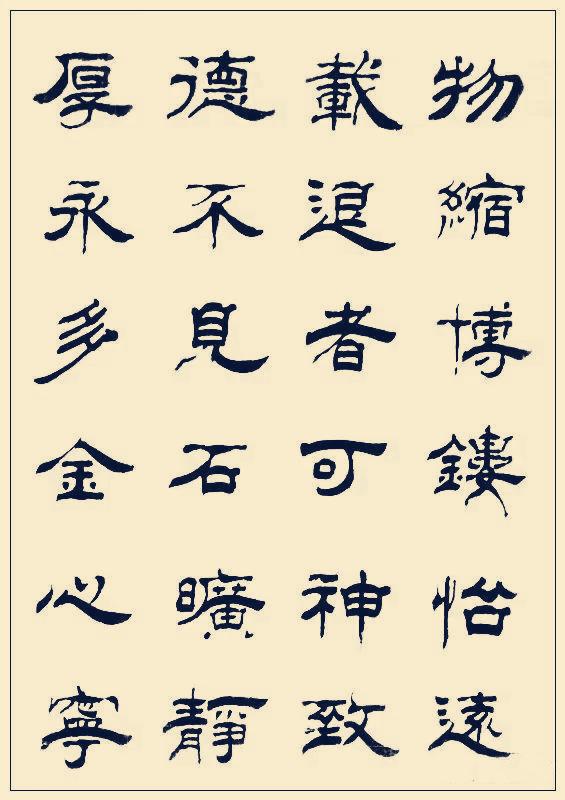 厚德載物
永不退縮
多見者博
金石可鏤
心曠神怡
寧靜致遠